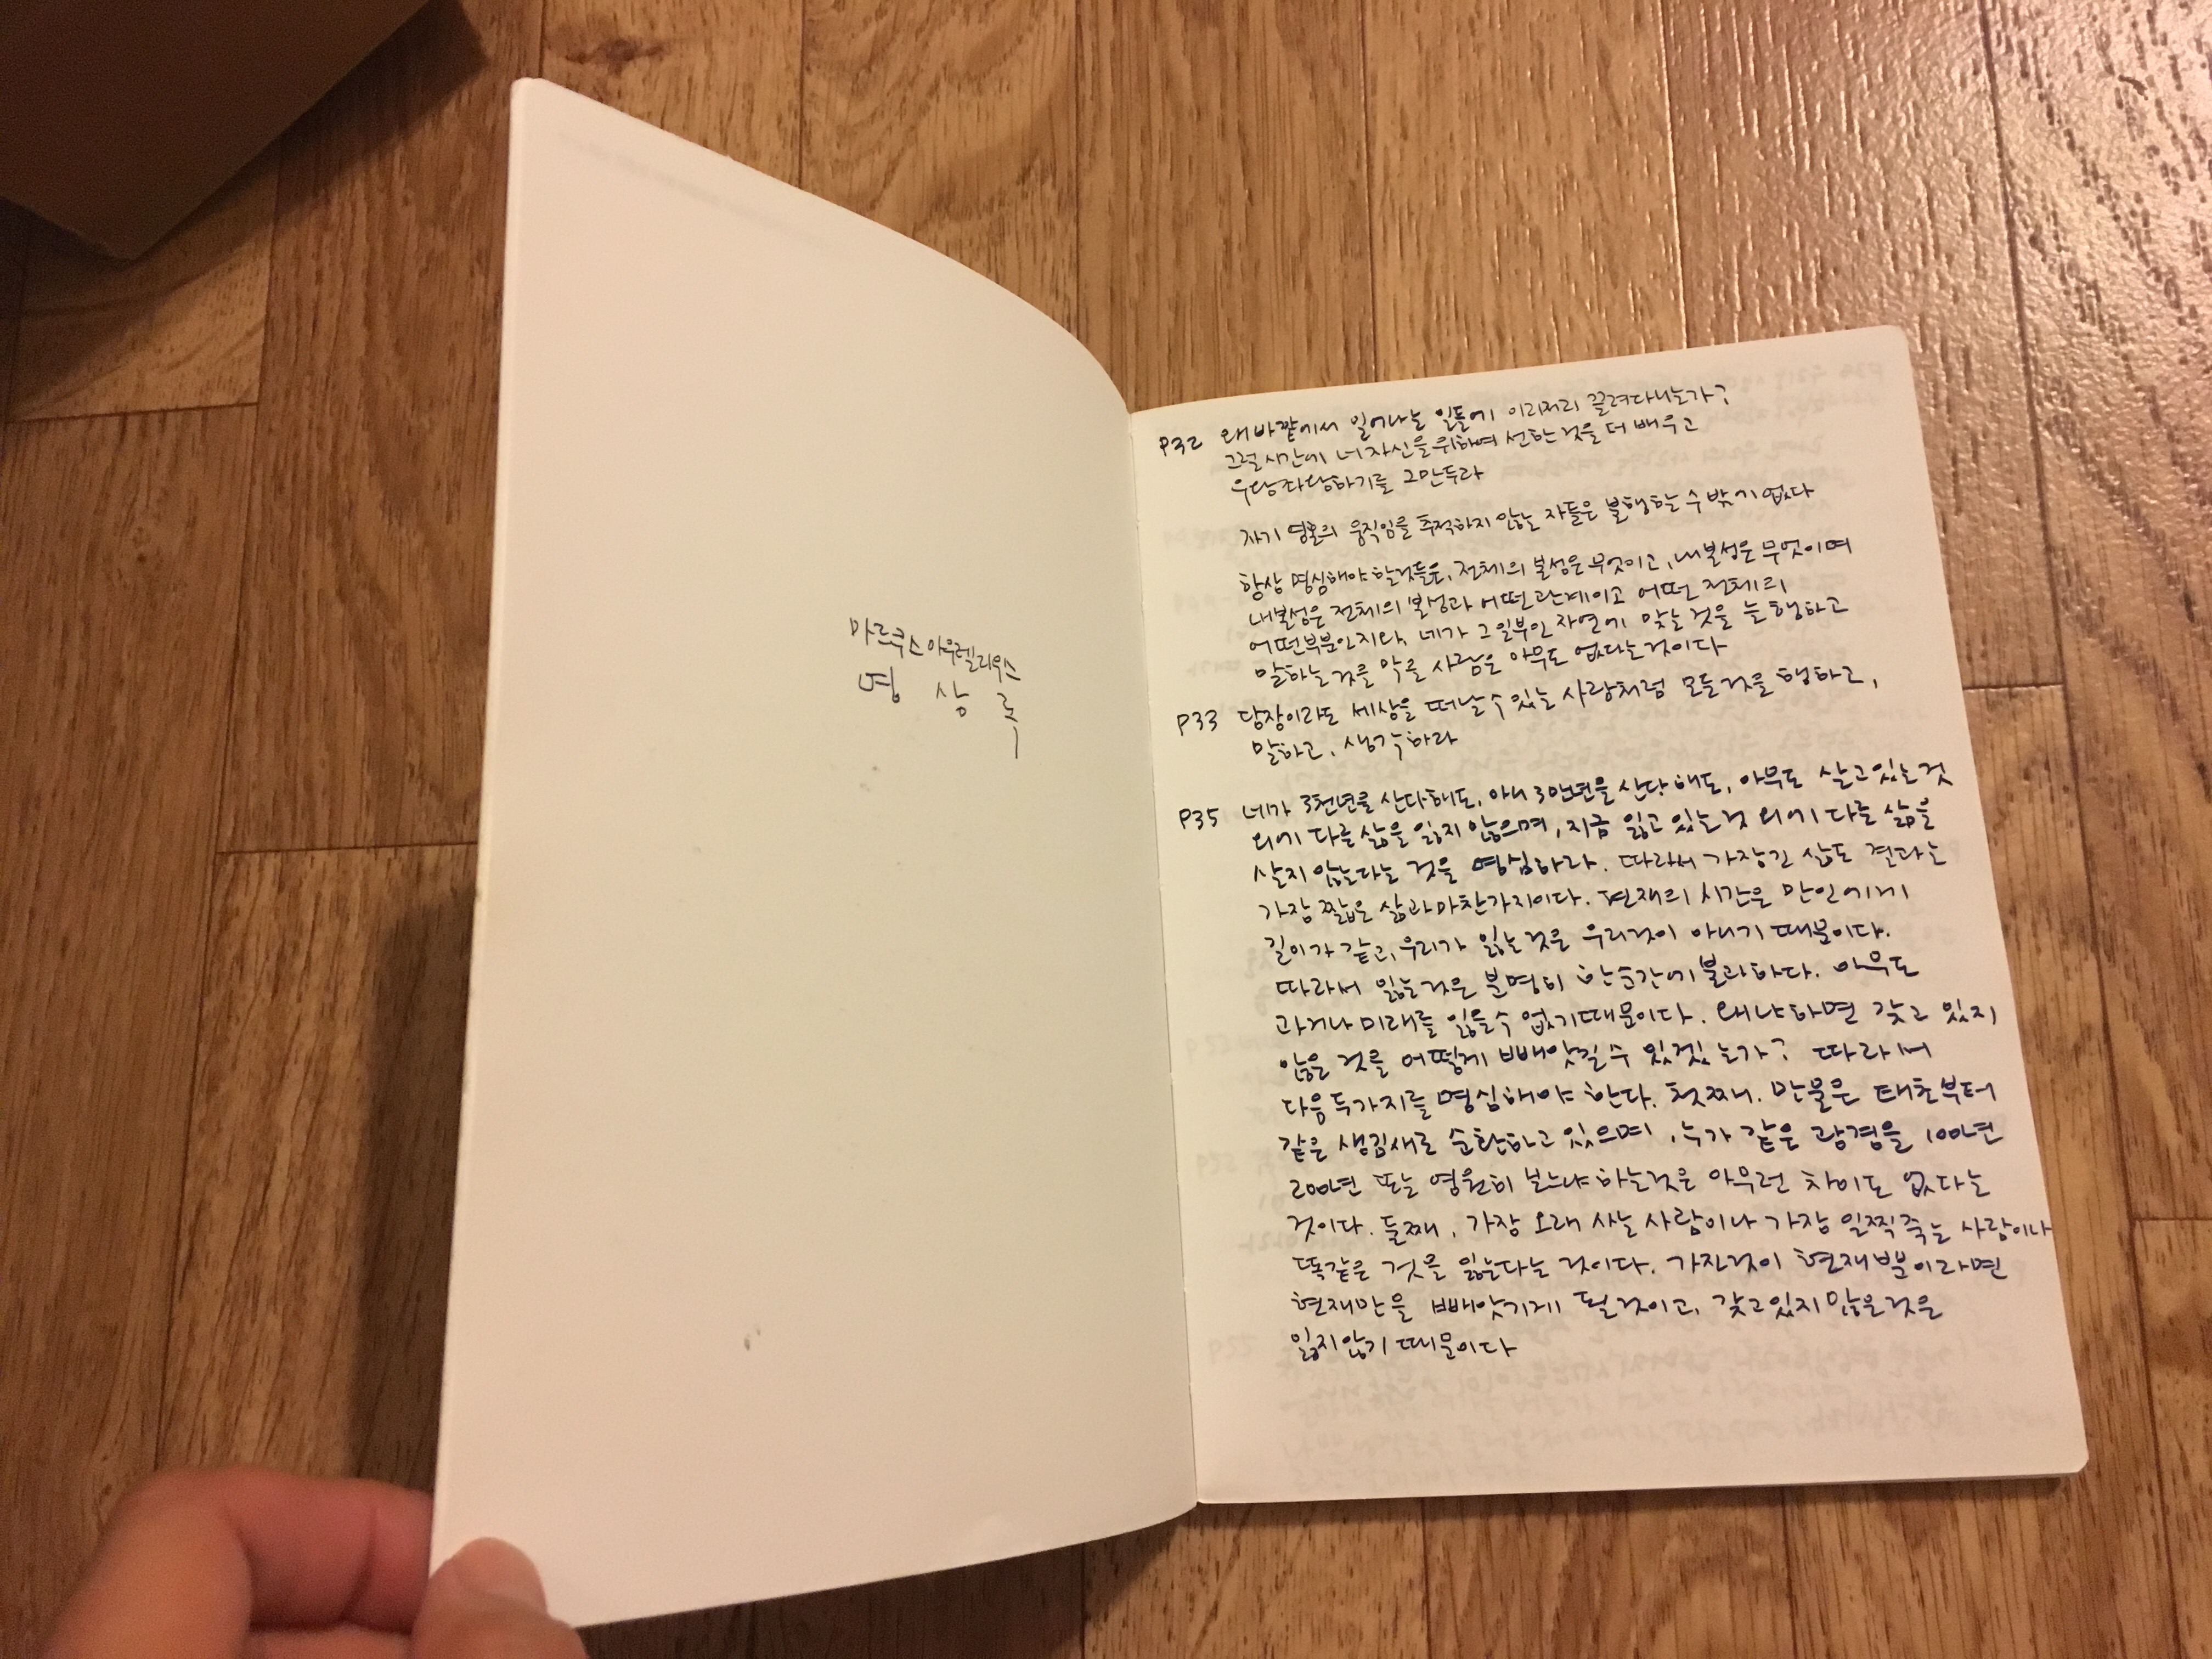 마르쿠스 아우렐리우스
명 상 록
P32 왜 바깥에서 일어나는 일들에 이리저리 끌려다니는가?
그럴 시간에 네 자신을 위하여 선한 것을 더 배우고
우왕좌왕하기를 그만두라
자기 영혼의 움직임을 추적하지 않는 자들은 불행할 수 밖에 없다
항상 명심해야 할 것들은, 전체의 본성은 무엇이고, 내 본성은 무엇이며
내 본성은 전체의 본성과 어떤 관계이고 어떤 전체의
어떤 부분인지와, 네가 그 일부인 자연에 맞는 것을 늘 행하고
말하는 것을 막을 사람은 아무도 없다는 것이다
P33 당장이라도 세상을 떠날 수 있는 사람처럼 모든 것을 행하고,
말하고, 생각하라
P35 네가 3천년을 산다해도, 아니 3만년을 산다 해도, 아무도 살고 있는 것
외에 다른 삶을 잃지 않으며, 지금 잃고 있는 것 외에 다른 삶을
살지 않는다는 것을 명심하라. 따라서 가장 긴 삶도 결과는
가장 짧은 삶과 마찬가지이다. 현재의 시간은 만인에게
길이가 같고, 우리가 잃는 것은 우리 것이 아니기 때문이다.
따라서 잃는 것은 분명히 한순간에 불과하다. 아무도
과거나 미래를 잃을 수 없기 때문이다. 왜냐하면 갖고 있지
않은 것을 어떻게 빼앗길 수 있겠는가? 따라서
다음 두가지를 명심해야 한다. 첫째. 만물은 태초부터
같은 생김새로 순환하고 있으며, 누가 같은 광경을 100년
200년 또는 영원히 보느냐 하는 것은 아무런 차이도 없다는
것이다. 둘째, 가장 오래 사는 사람이나 가장 일찍 죽는 사람이나
똑같은 것을 잃는다는 것이다. 가진 것이 현재뿐이라면
현재만을 빼앗기게 될 것이고, 갖고 있지 않은 것은
잃지 않기 때문이다